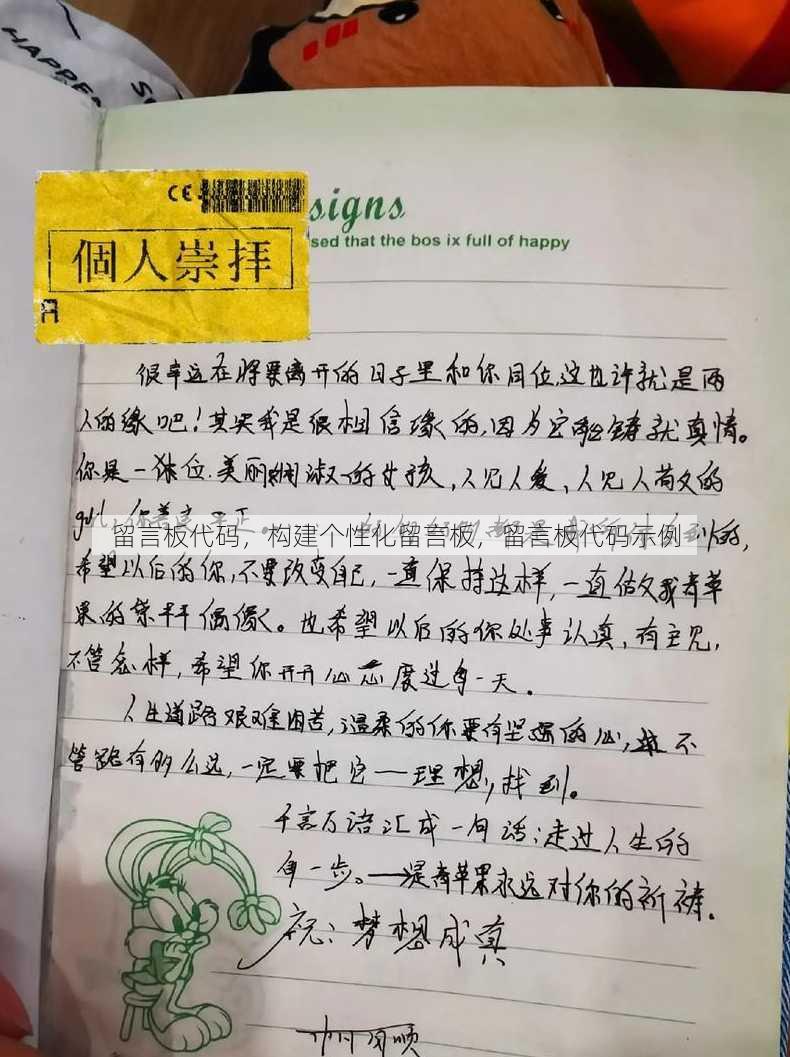 HAPPEN
CE
signs
sed that the bos ix full of happy
個人崇拜
很幸运在将要离开的日子里和你同位,这也许就是两
人的缘吧!其实我是很相信缘的,因为它能铸就真情。
你是一位美丽娴淑的女孩,人见人爱,人见人荷文的
girl
留言板代码,构建个性化留言板,留言板代码示例
的,
希望以后的你,不要改变自己,一直保持这样,一直做又我青苹
果的崇拜偶像。也希望以后的你处事认真,有主见,
不管怎样,希望你开开心心度过每一天。
人生道路艰难困苦,温柔的你要有坚强的心,不
管路有多么远,一定要把它——理想,找到。
千言万语汇成一句话:走过人生的
每一步。——是青苹果永远对你的祈祷。
祝:梦想成真